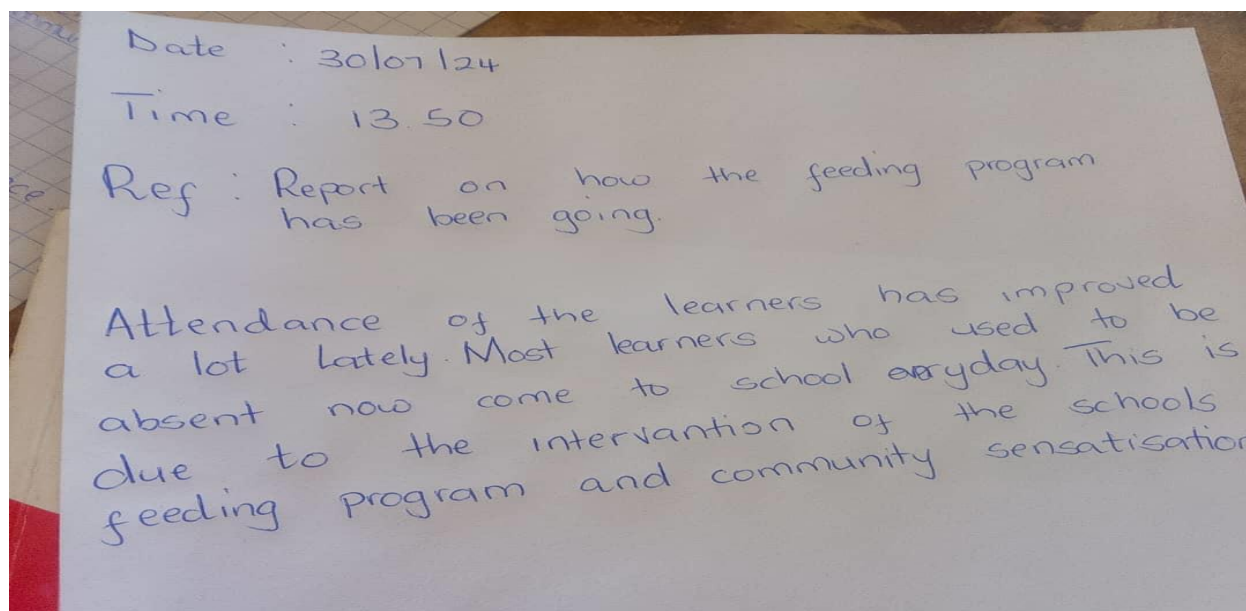 Date : 30/07/24
Time : 13.50
Ref : Report on how the feeding program
has been going.
Attendance of the learners has improved
a lot lately. Most learners who used to be
absent now come to school everyday. This is
due to the intervantion of the schools
feeding program and community sensatisation